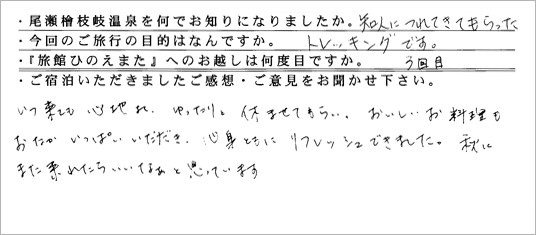 ・尾瀬檜枝岐温泉を何でお知りになりましたか。知人につれてきてもらった
・今回のご旅行の目的はなんですか。 トレッキングです。
・『旅館ひのえまた』へのお越しは何度目ですか。 3回目
・ご宿泊いただきましたご感想・ご意見をお聞かせ下さい。
いつ来ても心地れ、ゆったりと休ませてもらい、おいしいお料理も
おなかいっぱいいただき、心身ともにリフレッシュできました。秋に
また来れたらいいなぁと思っています